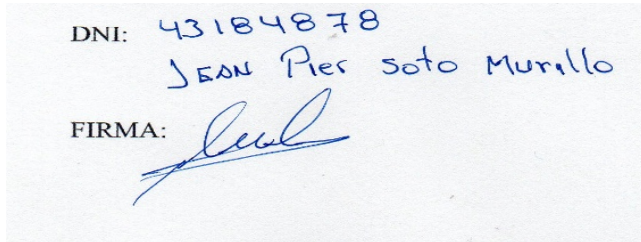 DNI: 43184878
JEAN Pier Soto Murillo
FIRMA: